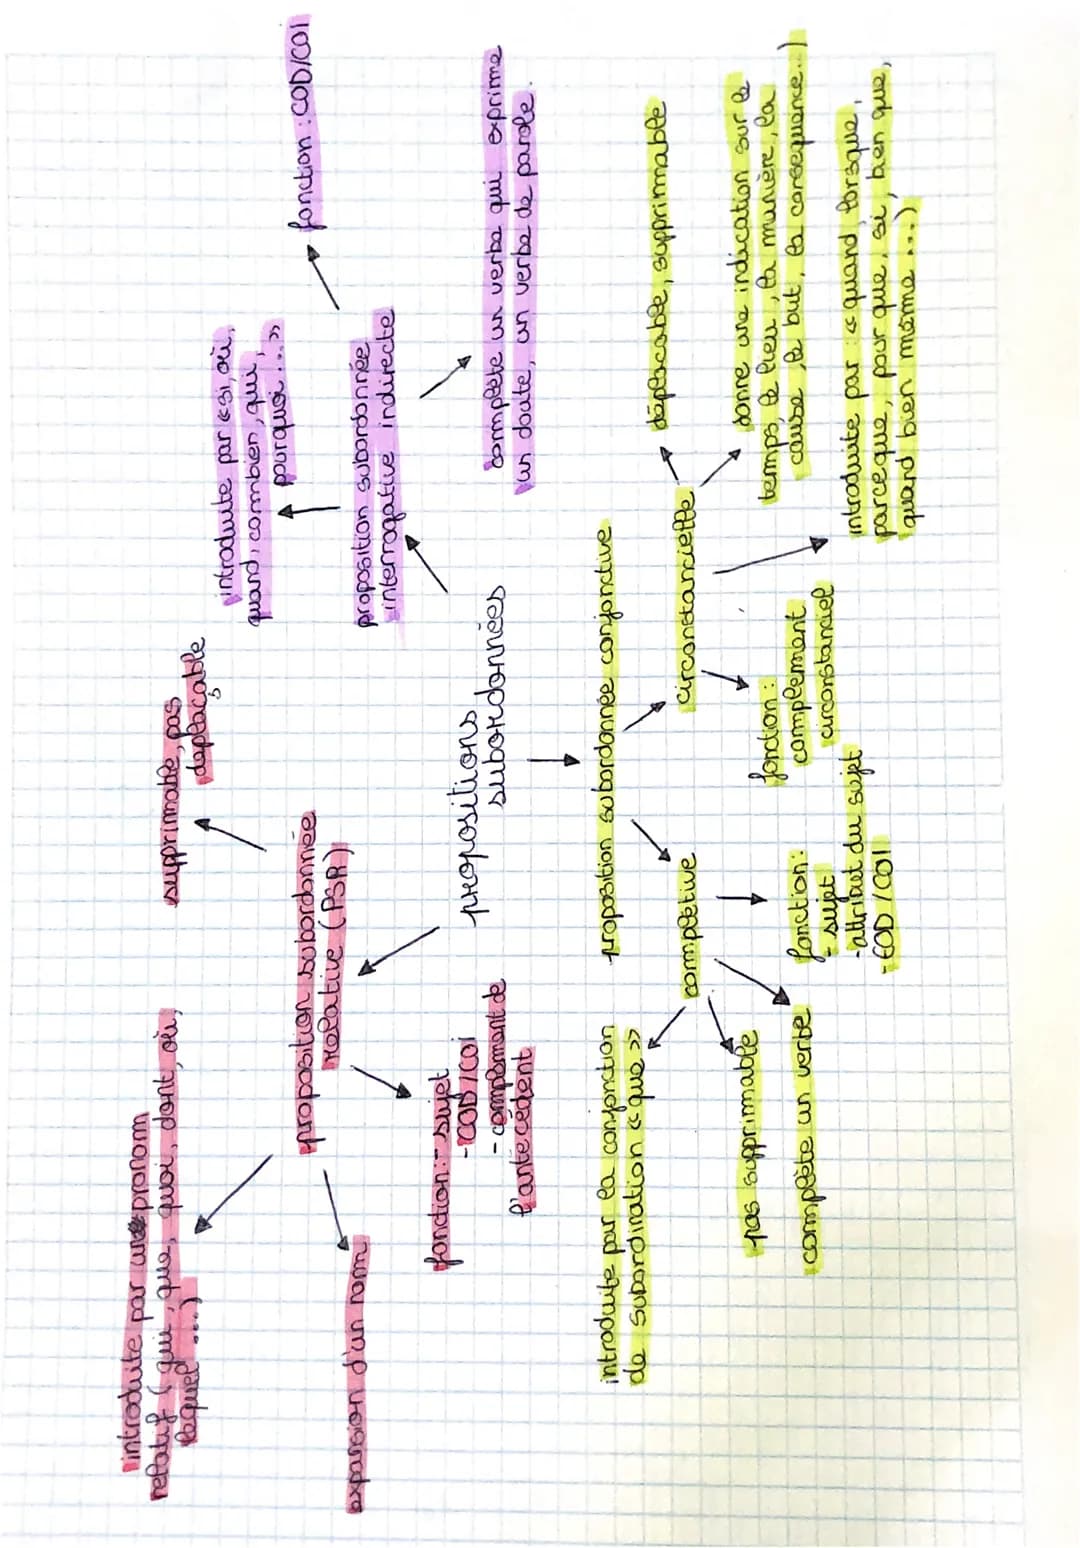 propositions
subordonnées
proposition subordonnée
relative (PSR)
introduite par un pronom
relatif (qui, que, quoi, dont, où,
lequel ...)
supprimable, pas
déplaçable
expansion d'un nom
fonction : - sujet
- COD/COI
- complément de
l'antécédent
proposition subordonnée
interrogative indirecte
introduite par « si, où,
quand, combien, qui,
pourquoi ... »
fonction : COD/COI
complète un verbe qui exprime
un doute, un verbe de parole.
proposition subordonnée conjonctive
complétive
introduite par la conjonction
de subordination « que »
pas supprimable
complète un verbe
fonction :
- sujet
- attribut du sujet
- COD/COI
circonstancielle
déplacable, supprimable
donne une indication sur le
temps, le lieu, la manière, la
cause, le but, la conséquence...)
introduite par : « quand, lorsque,
parceque, pour que, si, bien que,
quand bien même ...)
fonction :
complément
circonstanciel